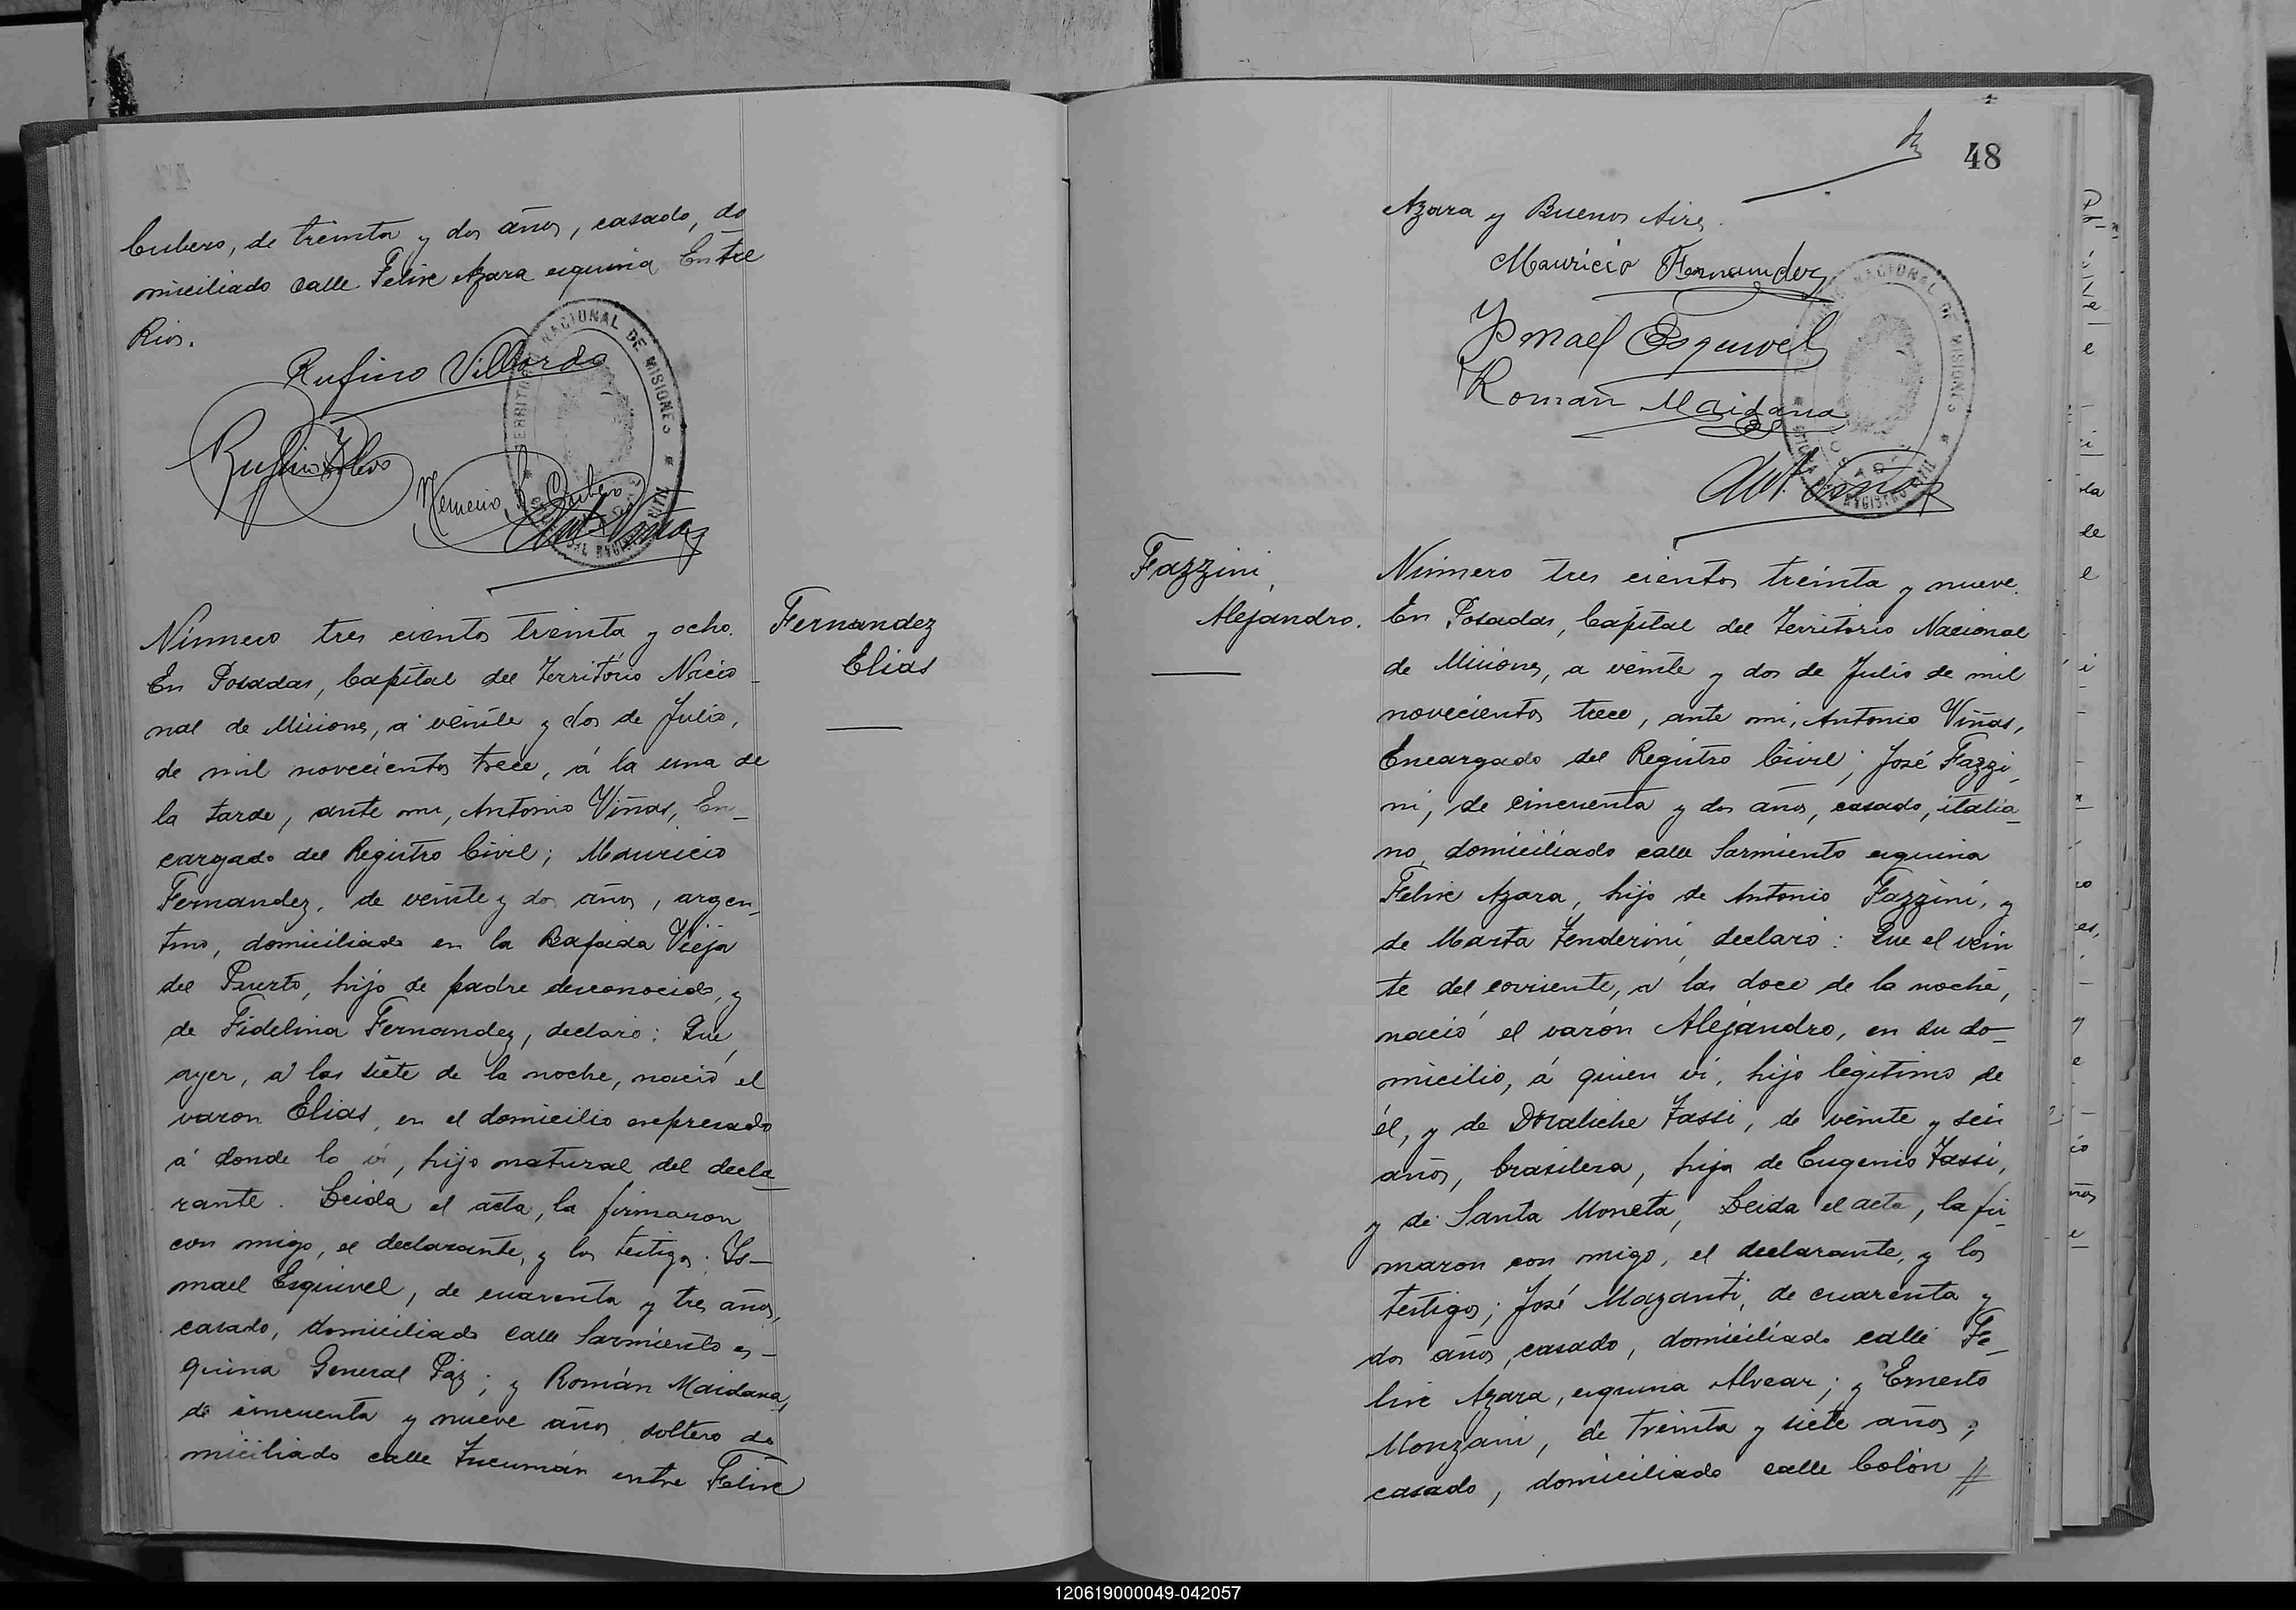 Cubero, de treinta y dos años, casado, do
miciliado calle Felix Azara esquina Entre
Rios.
Rufino Villorda
TERRITORIO NACIONAL DE MISIONES
Nemecio Cubero
Ant. Viñas
Número tres cientos treinta y ocho.
Fernandez
Elias
En Posadas, Capital del Territorio Nacio_
nal de Misiones, a veinte y dos de Julio,
de mil novecientos trece, á la una de
la tarde, ante mi, Antonio Viñas, En_
cargado del Registro Civil; Mauricio
Fernandez, de veinte y dos años, argen_
tino, domiciliado en la Bajada Vieja
del Puerto, hijo de padre desconocido, y
de Fidelina Fernandez, declaró: Que,
ayer, a las siete de la noche, nació el
varon Elias, en el domicilio expresado
á donde lo vi, hijo natural del decla_
rante. Leida el acta, la firmaron
con migo, el declarante, y los testigos: Is_
mael Esquivel, de cuarenta y tres años,
casado, domiciliado calle Sarmiento es_
quina General Paz; y Román Maidana,
de cincuenta y nueve años, soltero do
miciliado calle Tucumán entre Felix
48
Azara y Buenos Aires.
Mauricio Fernandez
Ysmael Esquivel
Roman Maidana
NACIONAL DE MISIONES
Ant. Viñas
Fazzini,
Alejandro.
Número tres cientos treinta y nueve.
En Posadas, Capital del Territorio Nacional
de Misiones, a veinte y dos de Julio de mil
novecientos trece, ante mi, Antonio Viñas,
Encargado del Registro Civil; José Fazzi_
ni, de cincuenta y dos años, casado, italia_
no, domiciliado calle Sarmiento esquina
Felix Azara, hijo de Antonio Fazzini, y
de Marta Tenderini, declaró: Que el vein
te del corriente, a las doce de la noche,
nació el varón Alejandro, en su do_
micilio, á quien vi, hijo legitimo de
él, y de Tassi, de veinte y seis
años, brasilera, hija de Eugenio Tassi,
y de Santa Moneta, Leida el acta, la fir_
maron con migo, el declarante, y los
testigos; José Mazanti, de cuarenta y
dos años, casado, domiciliado calle Fe_
lix Azara, esquina Alvear; y Ernesto
Monzani, de treinta y siete años,
casado, domiciliado calle Colón //
120619000049-042057